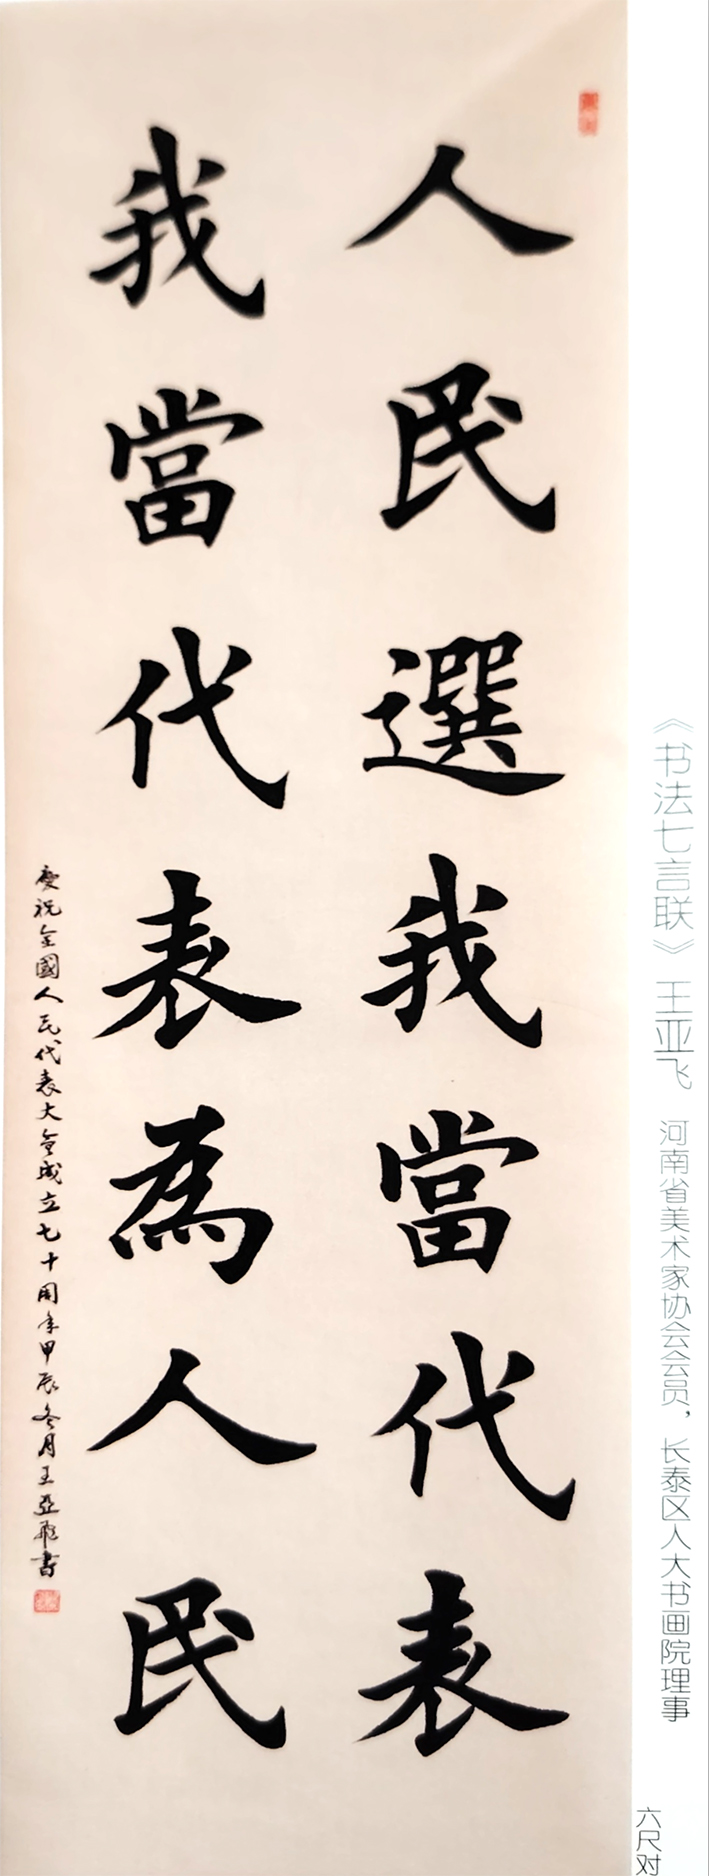 人民選我當代表
我當代表為人民
慶祝全國人民代表大會成立七十周年甲辰冬月王亞飛書
《书法七言联》 王亚飞 河南省美术家协会会员，长泰区人大书画院理事
六尺对